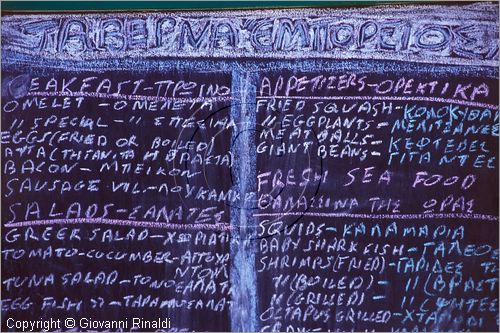 ΤΑΒΕΡΝΑ-ΕΜΠΟΡΖΙΟΣ
ΠΡΩΙΝΟ
OMELET - ΟΜΕΛΕ
// SPECIAL - //
EGGS (FRIED OR BOILED)
ΑΥΓΑ (ΤΗΓΑΝΙΤΑ Η ΒΡΑΣΤΑ)
BACON - ΜΠΕΙΚΟΝ
SAUSAGE VIL. - ΛΟΥΚΑΝΙΚ
SALADS - ΣΑΛΑΤΕΣ
GREEK SALAD - ΧΩΡΙΑΤΙΚ
TOMATO-CUCUMBER - ΑΓΓΟΥ
ΝΤΟΜ
TUNA SALAD - ΤΟΝΟ
ΣΑΛΑΤΑ
EGG-FISH // - ΤΑΡΑΜΟΣΑΛΑΤ
APPETIZERS - ΟΡΕΚΤΙΚΑ
FRIED SQUASH - ΚΟΛΟΚΥΘΑ
// EGGPLANTS - ΜΕΛΙΤΖΑΝΕΣ
MEAT BALLS - ΚΕΦΤΕΔΕΣ
GIANT BEANS - ΓΙΓΑΝΤΕΣ
FRESH SEA FOOD
ΘΑΛΑΣΣΙΝΑ ΤΗΣ ΩΡΑΣ
SQUIDS - ΚΑΛΑΜΑΡΙΑ
BABY SHARK FISH - ΓΑΛΕΟ
SHRIMPS (FRIED) - ΓΑΡΙΔΕΣ
// (BOILED) - // (ΒΡΑΣΤ
// (GRILLED) - // (ΨΗΤΕΣ
OCTAPUS GRILLED - ΧΤΑΠΟΔΙ
Copyright © Giovanni Rinaldi